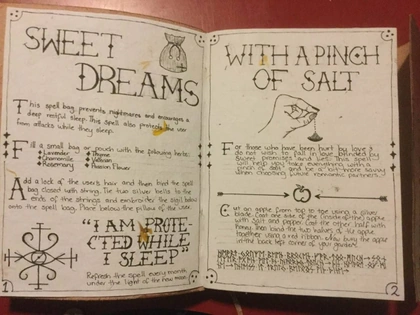 SWEET
DREAMS
This spell bag prevents nightmares and encourages a
deep restful sleep. This spell also protects the user
from attacks while they sleep.
Fill a small bag or pouch with the following herbs:
Lavender Thyme
Chamomile
Rosemary Passion Flower
Add a lock of the users hair and then bind the spell
bag closed with string. Tie two silver bells to the
ends of the strings, and embroider the sigil below
onto the spell bag. Place below the pillow of the user.
"I AM PROTE-
CTED WHILE
I SLEEP"
Refresh the spell every month
under the light of the new moon.
1
WITH A PINCH
OF SALT
For those who have been hurt by love &
do not wish to fall in love blinded by
sweet promises and lies. This spell
will help you take everything with a
pinch of salt and be a bit more savvy
when choosing future romantic partners.
Cut an apple from top to toe using a silver
blade. Coat one side of the inside of the apple
with salt and pepper. Coat the other half with
honey. Then bind the two halves of the apple
together using a red ribbon and bury the apple
in the back left corner of your garden.
2